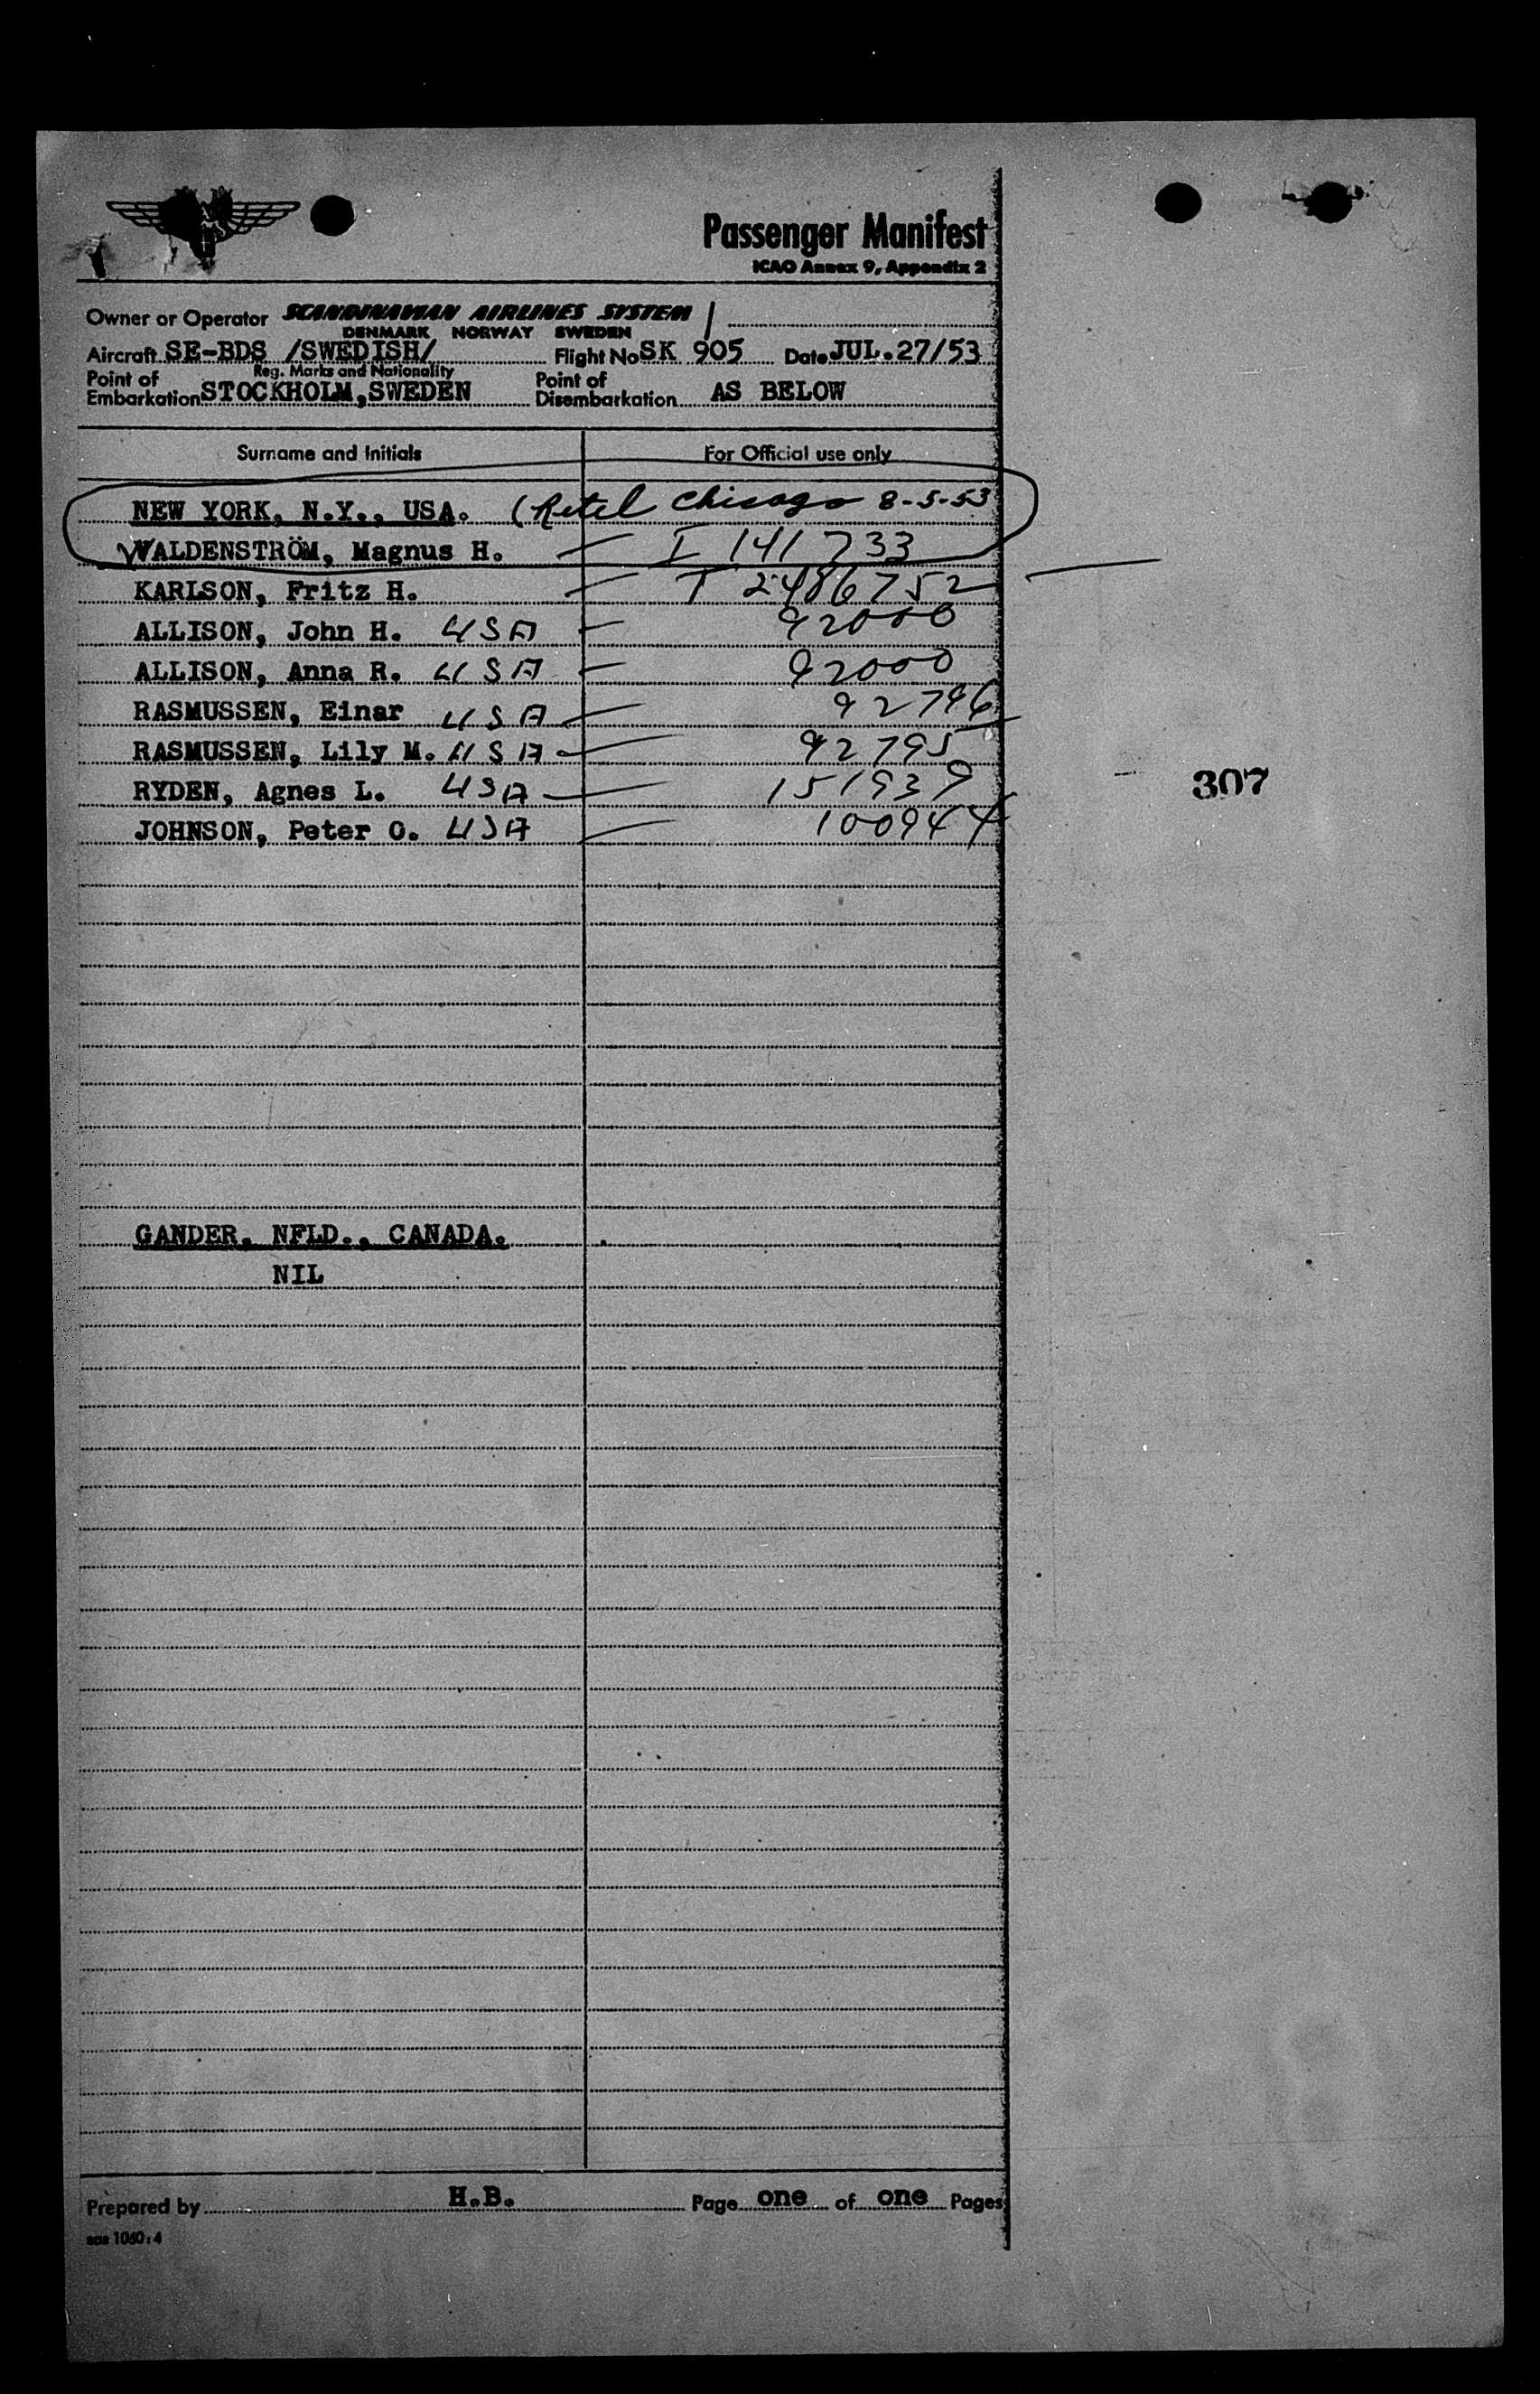 Passenger Manifest
ICAO Annex 9, Appendix 2
Owner or Operator SCANDINAVIAN AIRLINES SYSTEM
DENMARK NORWAY SWEDEN
Aircraft SE-BDS /SWEDISH/ Flight No SK 905 Date JUL.27/53
Reg. Marks and Nationality
Point of Embarkation STOCKHOLM, SWEDEN Point of Disembarkation AS BELOW
Surname and Initials For Official use only
NEW YORK, N.Y., USA. (Retel Chicago 8-5-53
WALDENSTRÖM, Magnus H. I 141733
KARLSON, Fritz H. T 2486752
ALLISON, John H. USA 92000
ALLISON, Anna R. USA 92000
RASMUSSEN, Einar USA 92796
RASMUSSEN, Lily M. USA 92795
RYDEN, Agnes L. USA 151939
307
JOHNSON, Peter O. USA 100944
GANDER, NFLD., CANADA.
NIL
Prepared by H.B. Page one of one Pages
sas 1060:4